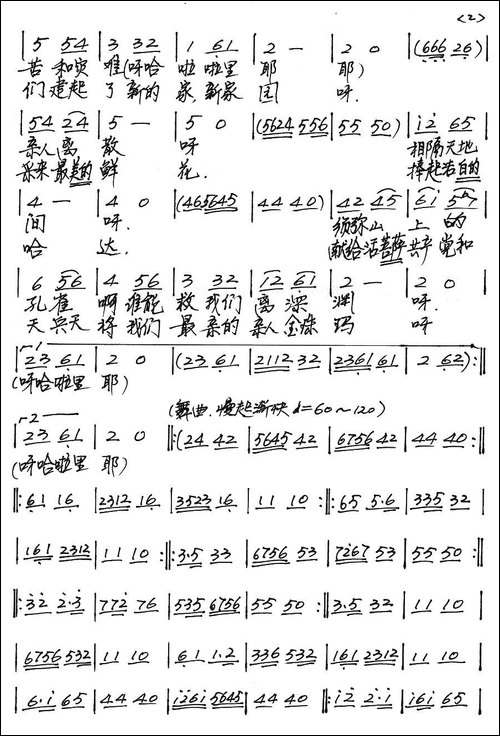 <2>
|5 54|3 32|1 61|2 —|2 0|(666 26)|
苦和灾难(呀哈啦啦里耶耶)
们建起了新的家,新家园呀.
|54 24|5 —|5 0|(5624 556|55 50)|i2 65|
亲人离散呀相隔天地
采来最美的鲜花.捧起洁白的
|4 —|4 0|(465645|44 40)|42 45|61 57|
间呀.须弥山上的
哈达.献给活菩萨共产党和
|6 56|4 56|3 32|12 61|2 —|2 0|
孔雀啊谁能救我们离深渊呀.
天兵天将我们最亲的亲人金珠玛呀
1
|23 61|2 0|(23 61|2112 32|2361 61|2 62):||
(呀哈啦里耶)
2 (舞曲.慢起渐快 ♩=60~120)
|23 61|2 0||:(24 42|5645 42|6756 42|44 40:||
(呀哈啦里耶)
||:61 16|2312 16|3523 16|11 10:||:65 5·6|335 32|
|161 2312|11 10:||:3·5 33|6756 53|7267 53|55 50:||
||:32 2·3|772 76|535 6756|55 50:||3·5 32|11 10|
|6756 532|11 10|61 1·2|336 532|161 2312|11 10|
|6·i 65|44 40|i26i 5645|44 40||:i2 2·i|i6i 65|